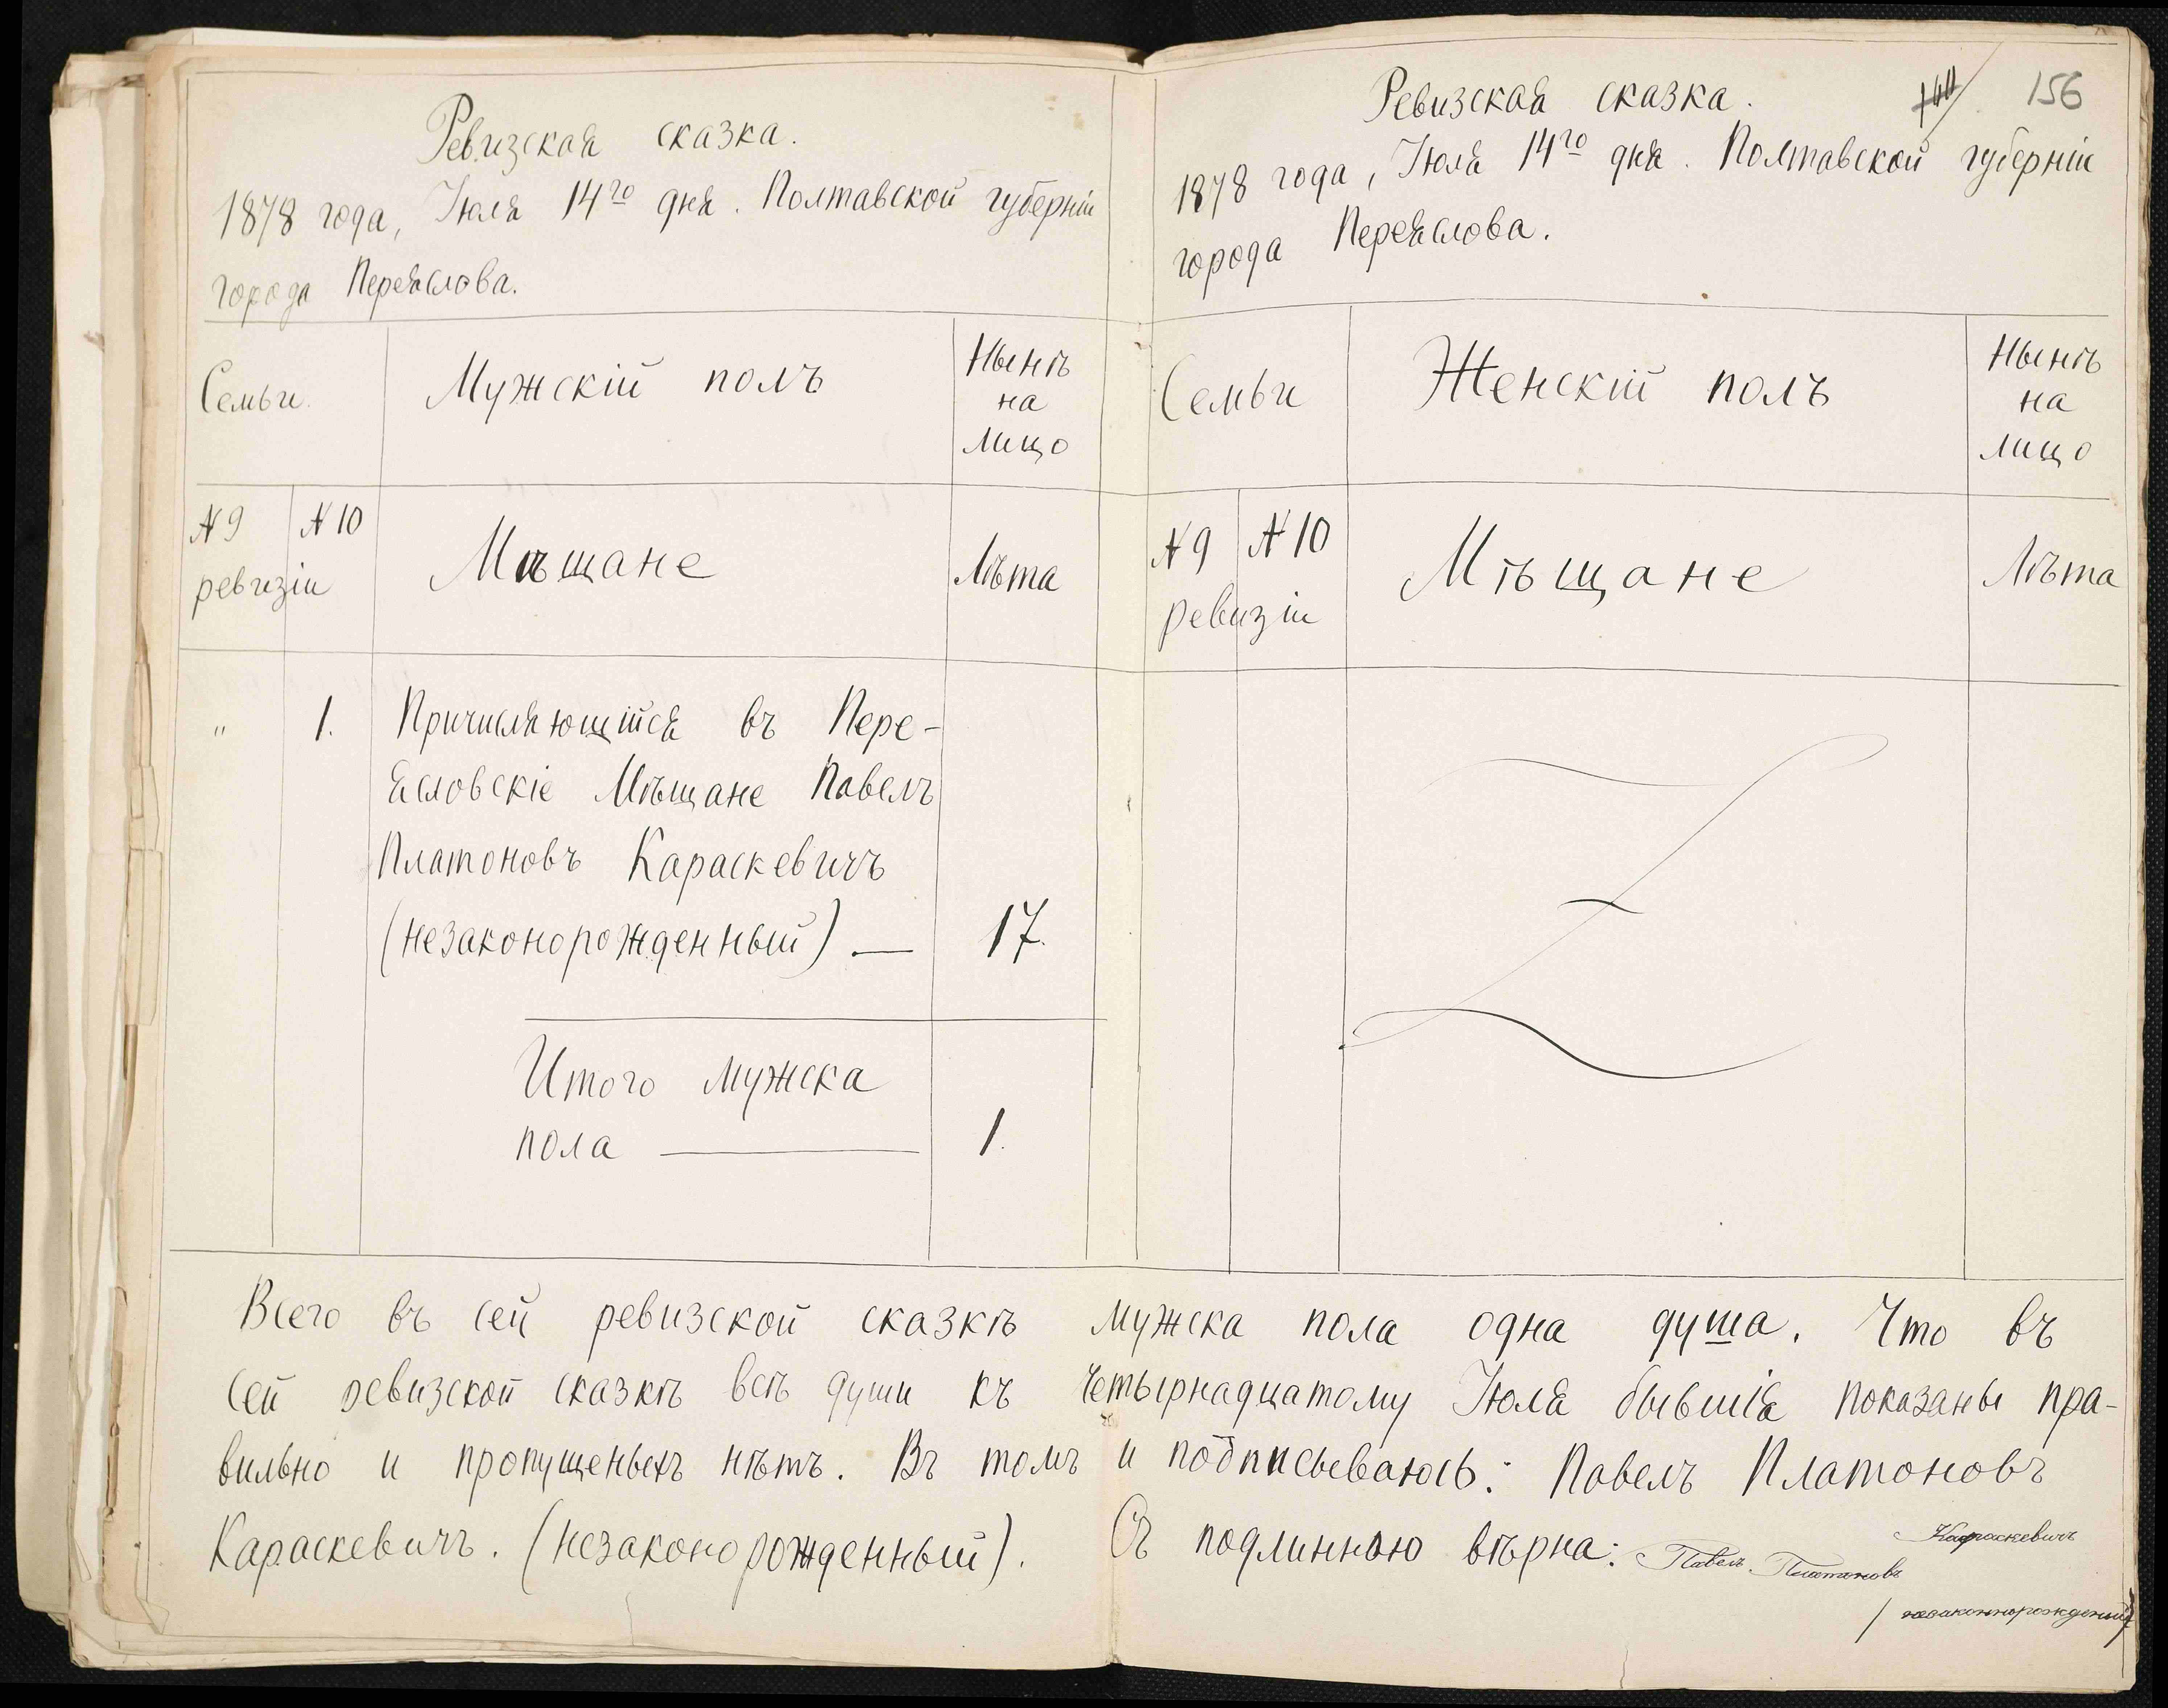 Ревизская сказка.
1878 года, Іюля 14го дня. Полтавской губерніи
города Переяслова.
Семьи
Мужскій полъ
Нынѣ
на
лицо
N 9
N 10
ревизіи
Мѣщане
Лѣта
"
1.
Причисляющійся въ Пере-
ясловскіе Мѣщане Павелъ
Платоновъ Караскевичъ
(незаконорожденный) —
17.
Итого мужска
пола —
1.
Ревизская сказка.
156
1878 года, Іюля 14го дня. Полтавской губерніи
города Переяслова.
Семьи
Женскій полъ
Нынѣ
на
лицо
N 9
N 10
ревизіи
Мѣщане
Лѣта
Всего въ сей ревизской сказкѣ мужска пола одна душа. Что въ
сей ревизской сказкѣ всѣ души къ четырнадцатому Іюля бывшія показаны пра-
вильно и пропущеныхъ нѣтъ. Въ томъ и подписываюсь: Павелъ Платоновъ
Караскевичъ. (незаконорожденный). Съ подлинною вѣрна: Павелъ Платоновъ
Караскевичъ
/незаконнорожденый/